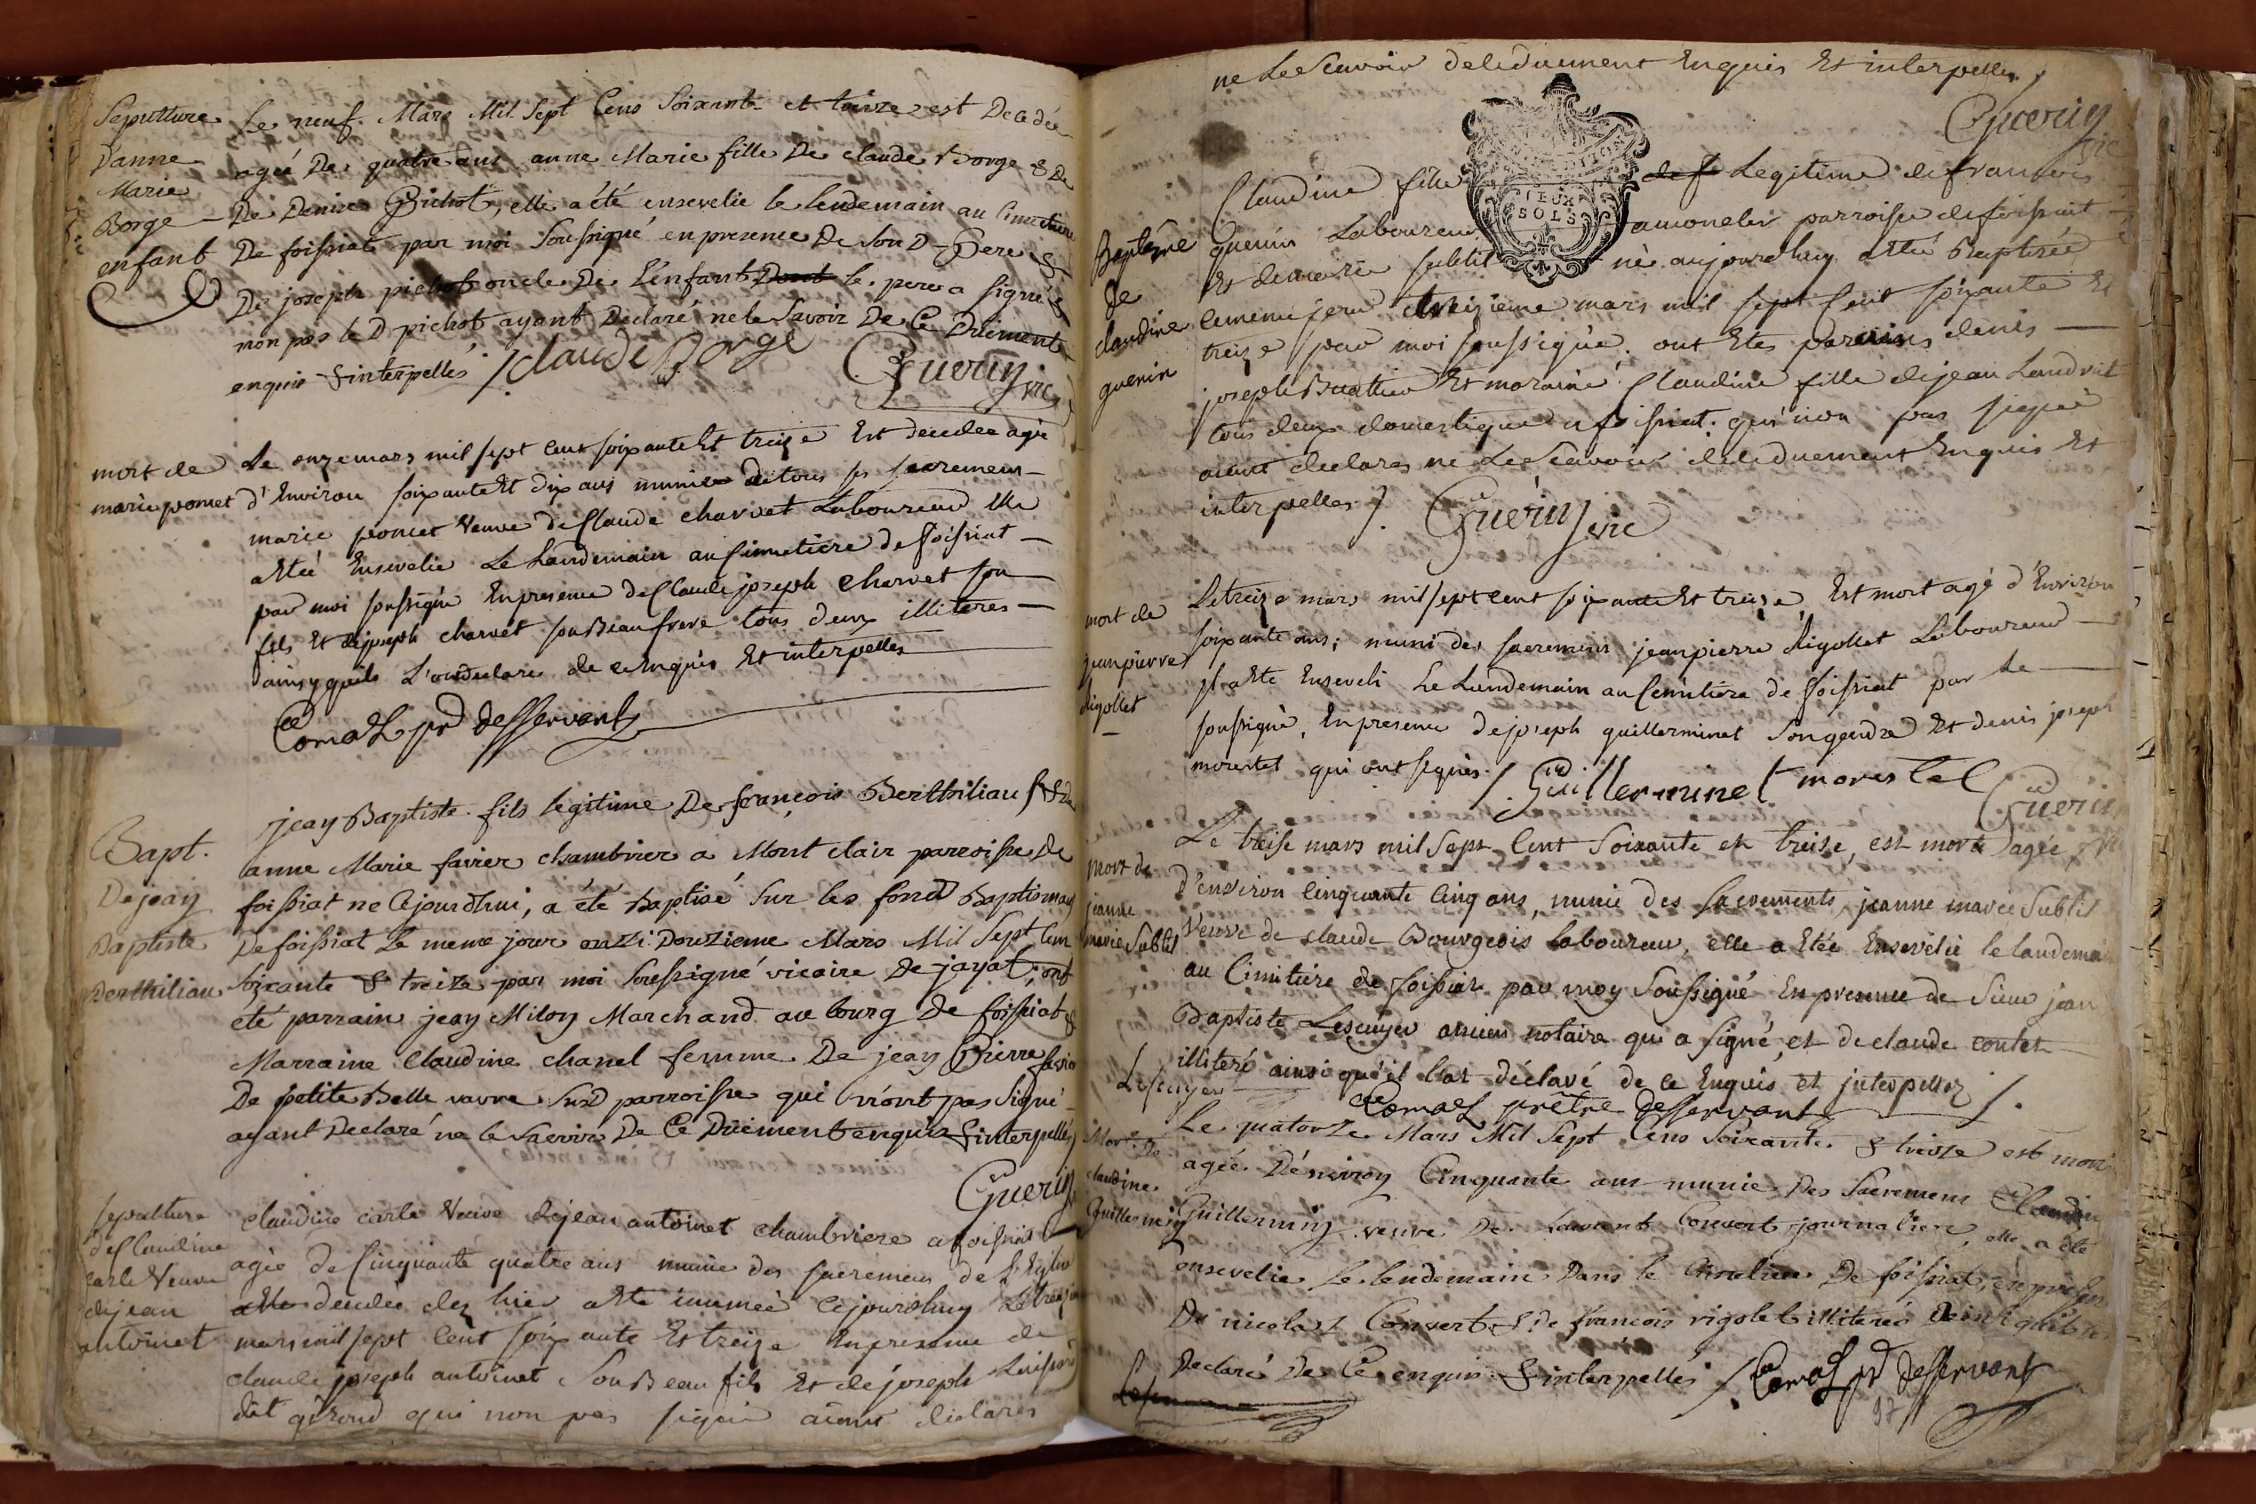 Sepulture
D'anne
Marie
Borge
enfant
Le neuf Mars Mil Sept Cens Soixante et treize est Decedée
ageé De quatre ans anne Marie fille De claude Borge & De
De Denise Pichot, elle a été ensevelie le lendemain au Cimetiere
De foissiat par moi Soussigné en presence De Son D. Pere &
De joseph pichot oncle De L'enfant Dont le pere a signé &
non pas le D pichot ayant Declaré ne le Savoir De Ce Duement
enquis & interpellés / claude Borge
Guerin vic
mort de
marie poncet
Le onze mars mil sept cent soixante Et treize Est decedee agée
d'Environ soixante Et dix ans munie de tous ses sacremens
marie poncet Veuve de Claude charvet Laboureur Elle
a Eté Ensevelie Le Landemain au Cimetiere de foissiat
par moi soussigné En presence de Claude joseph charvet son
fils Et de joseph charvet son Beau frere tous deux illiteres
ainsy quils L'on declare de ce Enquis Et interpelles
Comas pr desservant
Bapt.
De jean
Baptiste
Berthiliau
jean Baptiste fils legitime De françois Berthiliau & De
anne Marie favier chambrier a Mont clair parroisse De
foissiat ne Cejourdhui, a été baptisé Sur les fond Baptismaux
De foissiat Le meme jour Douzieme Mars Mil Sept Cen
Soixante & treize par moi Soussigné vicaire De jayat, ont
été parrain jean Miloy Marchand au bourg De foissiat &
Marraine Claudine chanel femme De jean Pierre
De petite Belle vavre Susd parroisse qui n'ont pas Signé
ayant Declaré ne le Savoir De Ce Duement enquis & interpellés
Guerin
sepulture
de Claudine
carle Veuve
dejean
antoinet
claudine carle Veuve dejean antoinet chambriere a foissiat
agée de Cinquante quatre ans munie des sacremens de l'Eglise
decedée des hier a Eté inumée cejourdhuy Le treizieme
mars mil sept cent soixante Et treize En presence de
claude joseph antoinet Son Beau fils Et de joseph
dit girond qui non pas signé aiant declares
ne Le Scavoir de le duement Enquis Et interpelles
Guerin
vic
DEUX
SOLS
Baptême
de
claudine
guenin
Claudine fille Legitime de francois
guenin Laboureur a moneleir parroisse de foissiat
Et demarie subtil né aujourdhuy a Eté Baptisée
le meme jour treizieme mars mil sept Cent soixante Et
treize par moi soussigné. ont Etes parain denis
joseph Buathier Et maraine Claudine fille de jean Landrit
tous deux domestique a foissiat. qui non pas signé
aiant declares ne Le Scavoir de le duement Enquis Et
interpelles /. Guerin vic
mort de
jean pierre
Rigollet
Le treize mars mil sept cent soixante Et treize, Est mort agé d'Environ
soixante ans; muni des sacremens jean pierre Rigollet Laboureur
Il a Eté Enseveli Le Landemain au Cemitiere de foissiat par Le
soussigné, En presence de joseph guillerminet Son gendre Et denis joseph
morestel qui ont signés / Guillerminet morestel
Guerin
mort de
jeanne
marie Subtil
Le treise mars mil Sept Cent Soixante et treise, est morte agée,
D'environ Cinquante Cinq ans, munie des Sacrements jeanne marie Subtil
Veuve de claude Bourgeois laboureur, elle a Etée Ensevelie le landemain
au Cimitiere de foissiat par moy Soussigné En presence de Sieur jean
Baptiste Lescuyer ancien notaire qui a Signé, et de claude contet
illiteré ainsi qu'il l'at déclaré de ce Enquis et interpellez /.
Lescuyer
Comas prêtre desservant
Mort De
claudine
Guillermin
Le quatorze Mars Mil Sept Cens Soixante & treize est morte
ageé D'environ Cinquante ans munie Des Sacremens Claudine
Guillermin veuve De Laurent Convert journalier, elle a été
ensevelie le lendemain Dans le Cimetiere De foissiat, en presence
De nicolas Convert & De francois rigolet illiterés
Declaré De Ce enquis & interpellés / Comas pr desservant
97